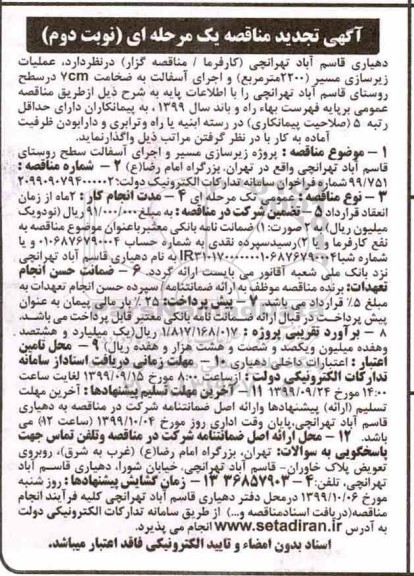 آگهی تجدید مناقصه یک مرحله ای (نوبت دوم)
دهیاری قاسم آباد تهرانچی (کارفرما / مناقصه گزار) درنظردارد، عملیات
زیرسازی مسیر (۲۲۰۰مترمربع) و اجرای آسفالت به ضخامت ۷cm درسطح
روستای قاسم آباد تهرانچی را با اطلاعات پایه به شرح ذیل ازطریق مناقصه
عمومی برپایه فهرست بهاء راه و باند سال ۱۳۹۹، به پیمانکاران دارای حداقل
رتبه ۵ (صلاحیت پیمانکاری) در رسته ابنیه یا راه وترابری و دارابودن ظرفیت
آماده به کار با در نظر گرفتن مراتب ذیل واگذارنماید.
۱ - موضوع مناقصه : پروژه زیرسازی مسیر و اجرای آسفالت سطح روستای
قاسم آباد تهرانچی واقع در تهران، بزرگراه امام رضا(ع) ۲ - شماره مناقصه :
۹۹/۷۵۱ شماره فراخوان سامانه تدارکات الکترونیک دولت:
۳ - نوع مناقصه : عمومی تک مرحله ای ۴ - مدت انجام کار : ۲ماه از زمان
انعقاد قرارداد ۵ - تضمین شرکت در مناقصه : به مبلغ ۹۱/۰۰۰/۰۰۰ ریال (نودویک
میلیون ریال) به ۲ صورت: ۱) ضمانت نامه بانکی معتبرباعنوان موضوع مناقصه به
نفع کارفرما (یا) ۲)رسیدسپرده نقدی به شماره حساب ۰۱۰۶۸۷۶۷۹۰۰۴ و یا
شماره شبا به نام دهیاری قاسم آباد تهرانچی
نزد بانک ملی شعبه آفانور می بایست ارائه گردد. ۶ - ضمانت حسن انجام
تعهدات: برنده مناقصه موظف به ارائه ضمانتنامه/ سپرده حسن انجام تعهدات به
مبلغ ۵٪ قرارداد می باشد. ۷ - پیش پرداخت: ۲۵ ٪ بار مالی پیمان به عنوان
پیش پرداخت در قبال ارائه ضمانت نامه بانکی معتبر قابل پرداخت می باشد.
۸ - برآورد تقریبی پروژه : ۱/۸۱۷/۱۶۸/۰۱۷ ریال(یک میلیارد و هشتصد
وهفده میلیون ویکصد و شصت و هشت هزار و هفده ریال) ۹ - محل تامین
اعتبار : اعتبارات داخلی دهیاری ۱۰ - مهلت زمانی دریافت اسناداز سامانه
تدارکات الکترونیکی دولت : ازساعت ۸:۰۰ مورخ ۱۳۹۹/۰۹/۱۵ لغایت ساعت
۱۴:۰۰ مورخ ۱۳۹۹/۰۹/۲۴ ۱۱ - آخرین مهلت تسلیم پیشنهادها : آخرین مهلت
تسلیم (ارائه) پیشنهادها وارائه اصل ضمانتنامه شرکت در مناقصه به دهیاری
قاسم آباد تهرانچی،پایان وقت اداری روز مورخ ۱۳۹۹/۱۰/۰۴ (ساعت ۱۲) می
باشد. ۱۲ - محل ارائه اصل ضمانتنامه شرکت در مناقصه وتلفن تماس جهت
پاسخگویی به سوالات: تهران، بزرگراه امام رضا(ع) (غرب به شرق)، روبروی
تعویض پلاک خاوران- قاسم آباد تهرانچی، خیابان شورا، دهیاری قاسم آباد
تهرانچی، تلفن: ۴ - ۳۶۸۵۷۹۰۳ ۱۳ - زمان گشایش پیشنهادها : روز شنبه
مورخ ۱۳۹۹/۱۰/۰۶ درمحل دفتر دهیاری قاسم آباد تهرانچی کلیه فرآیند انجام
مناقصه(دریافت اسنادمناقصه و...) از طریق سامانه تدارکات الکترونیکی دولت
به آدرس www.setadiran.ir انجام می پذیرد.
اسناد بدون امضاء و تایید الکترونیکی فاقد اعتبار میباشد.